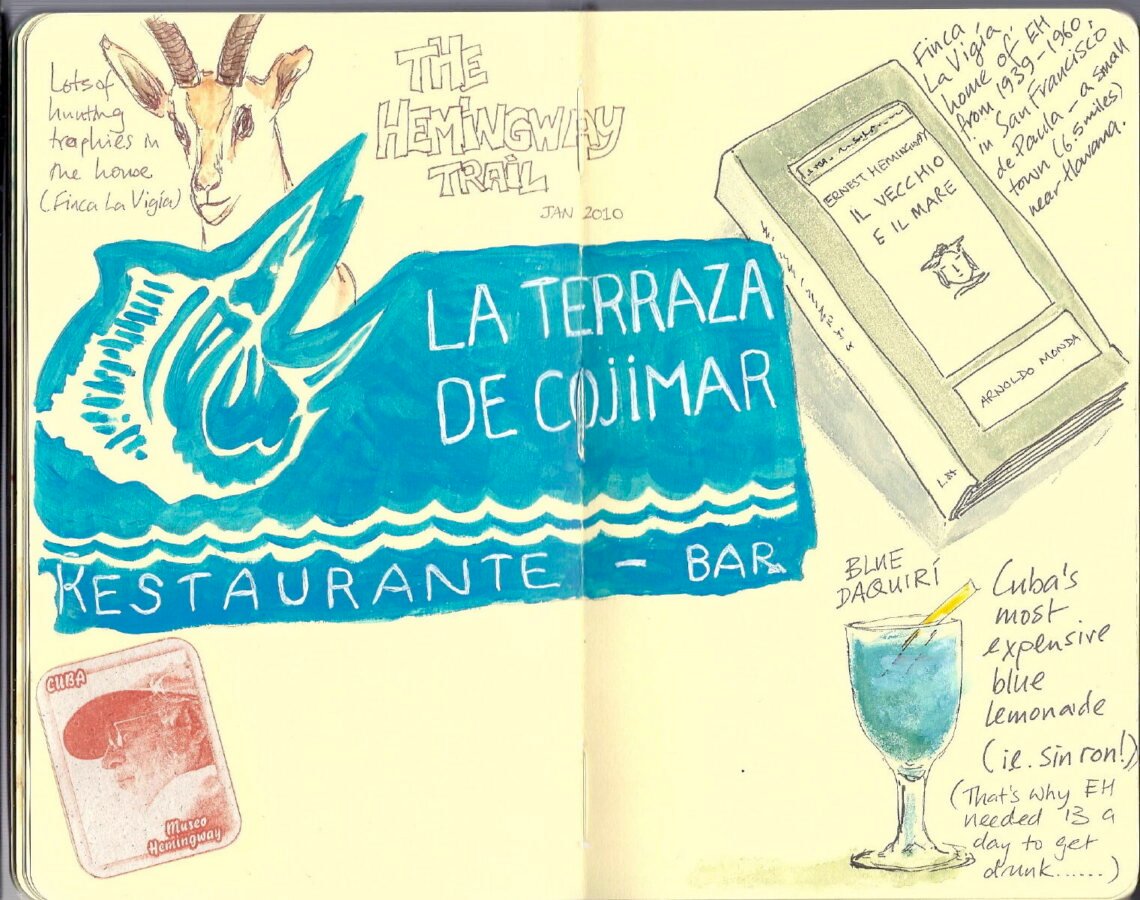 Lots of
hunting
trophies in
the house
(Finca La Vigía)
THE
HEMINGWAY
TRAIL
JAN 2010
Finca
La Vigía,
home of EH
from 1939-1960,
in San Francisco
de Paula - a small
town (6.5 miles)
near Havana.
ERNEST HEMINGWAY
IL VECCHIO
E IL MARE
ARNOLDO MONDA
LA TERRAZA
DE COJIMAR
RESTAURANTE - BAR
CUBA
Museo
Hemingway
BLUE
DAQUIRÍ
Cuba's
most
expensive
blue
lemonade
(ie. sin ron!)
(That's why EH
needed 13 a
day to get
drunk......)